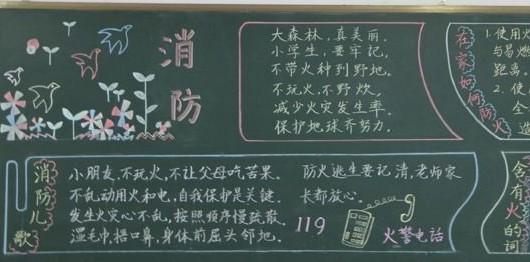 消防
大森林,真美丽。
小学生,要牢记。
不带火种到野地。
不玩火,不野炊。
减少火灾发生率。
保护地球齐努力。
在家如何防火
1.使用火
与易燃
距离
2.使
全
消防儿歌
小朋友,不玩火,不让父母吃苦果.
不乱动用火和电,自我保护是关键.
发生火灾心不乱,按照顺序慢疏散.
湿毛巾,捂口鼻,身体前屈头邻地.
防火逃生要记清,老师家
长都放心.
119
火警电话
含有火的词